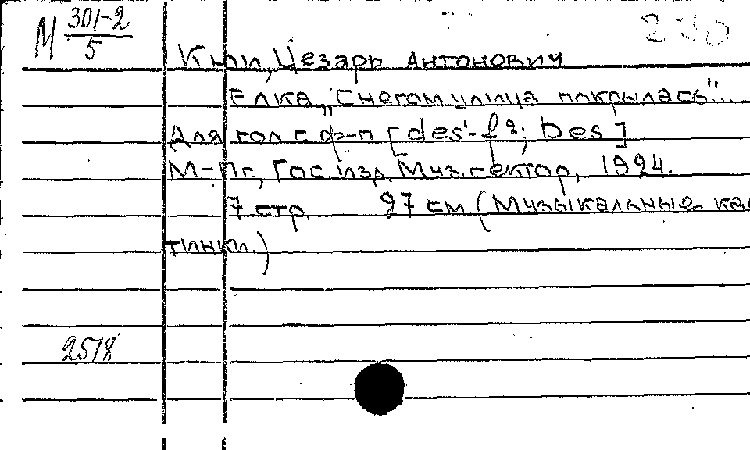 М 301-2
5
Кюи, Цезарь Антонович
Елка „Снегом улица покрылась"...
Для гол с ф-п [des'-f²; Des]
М-Пг, Гос изд Муз. сектор, 1924.
7 стр. 27 см (Музыкальные кар
тинки.)
2518